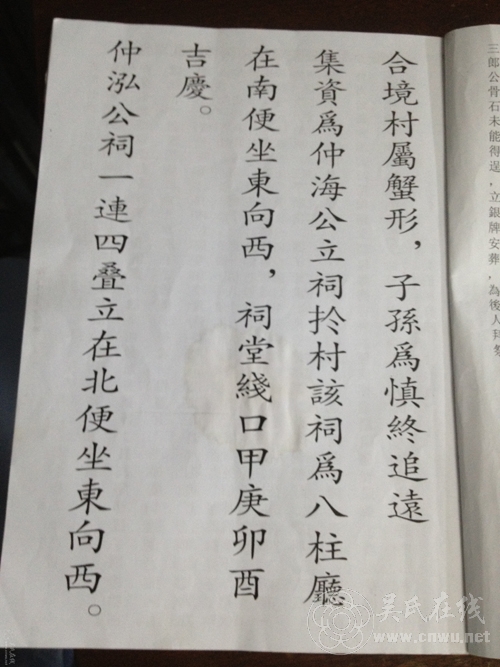 三郎公骨石未能得逞，立銀牌安葬，為後人拜祭
合境村屬蟹形，子孫爲慎終追遠
集資爲仲海公立祠扵村該祠爲八柱廳
在南便坐東向西，祠堂綫口甲庚卯酉
吉慶。
仲泓公祠一連四叠立在北便坐東向西。
吴氏在线
www.cnwu.net